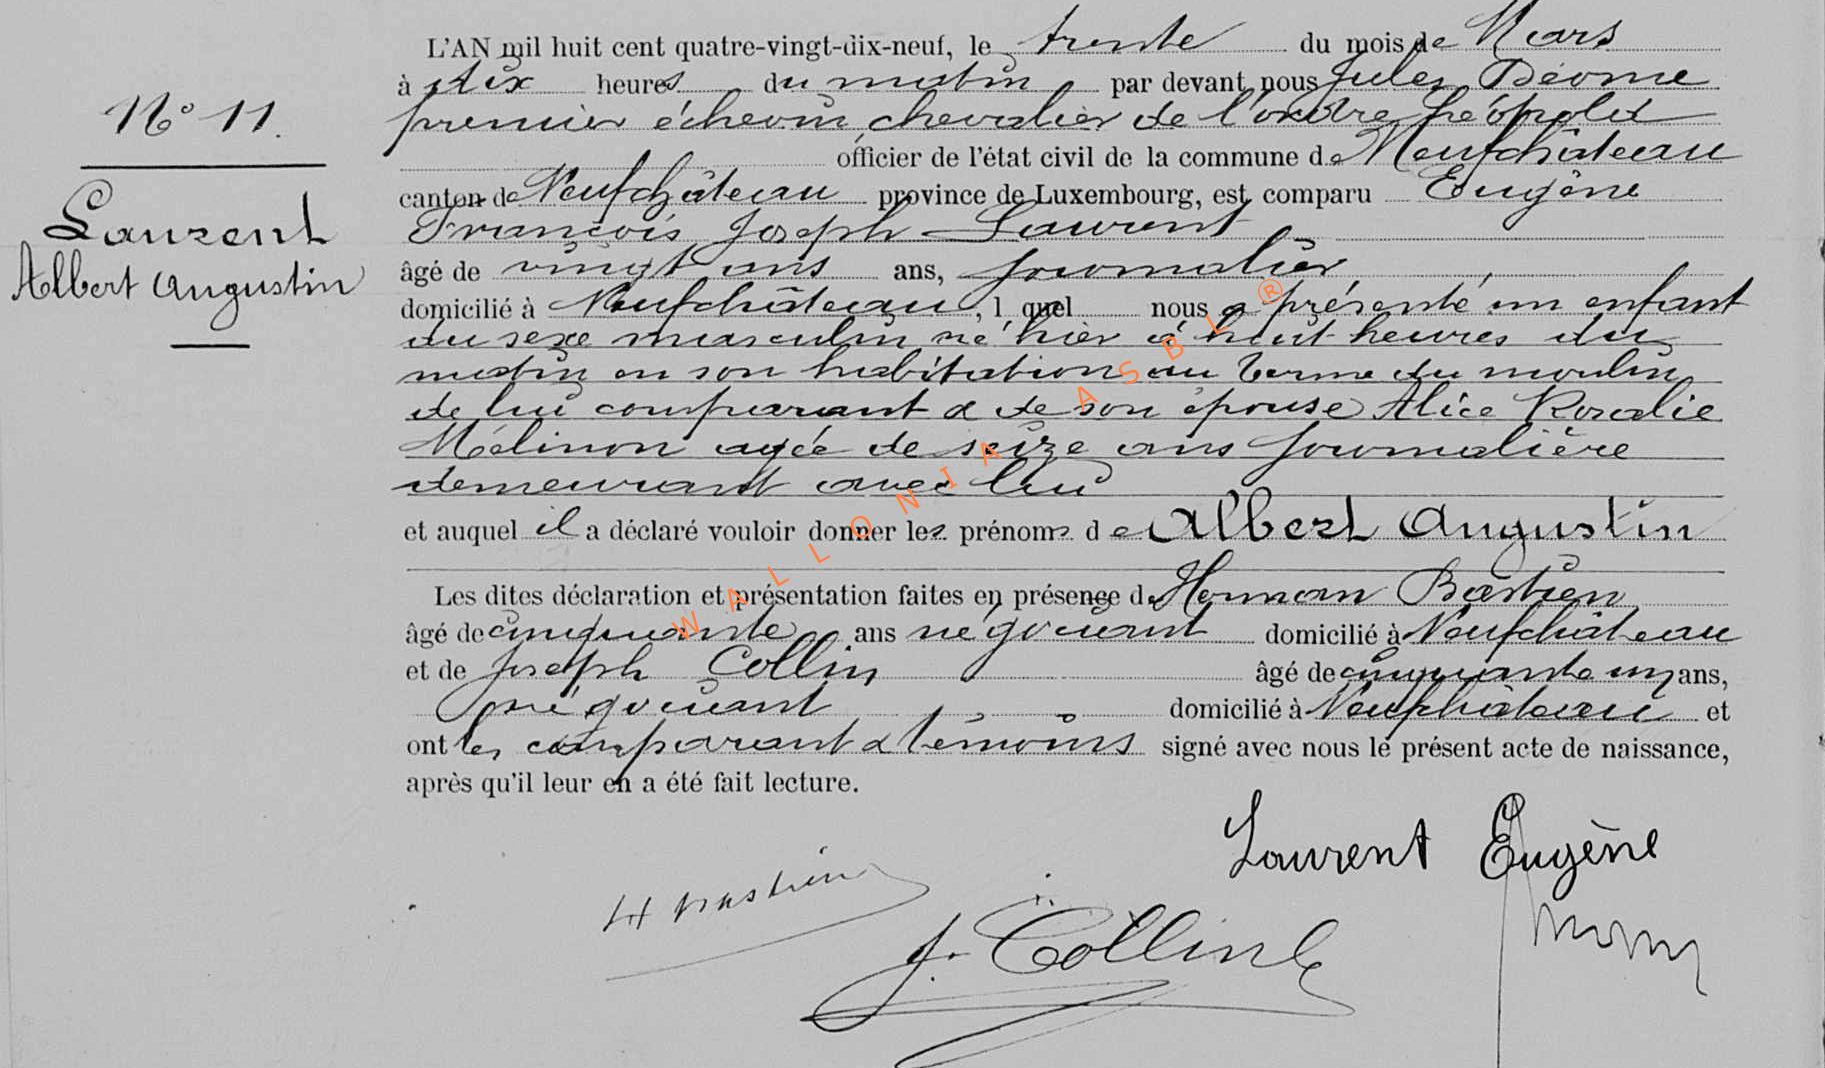 N° 11.
Laurent
Albert Augustin
L'AN mil huit cent quatre-vingt-dix-neuf, le trente du mois de Mars
à dix heures du matin par devant nous Jules Déome
premier échevin, chevalier de l'ordre Léopold
officier de l'état civil de la commune de Neufchâteau
canton de Neufchâteau province de Luxembourg, est comparu Eugène
François Joseph Laurent
âgé de vingt ans ans, journalier
domicilié à Neufchâteau, l quel nous a présenté un enfant
du sexe masculin né hier à huit heures du
matin en son habitation au Terme du moulin
de lui comparant & de son épouse Alice Rosalie
Mélinon agée de seize ans journalière
demeurant avec lui
et auquel il a déclaré vouloir donner les prénoms de Albert Augustin
Les dites déclaration et présentation faites en présence de Herman Bastien
âgé de cinquante ans négociant domicilié à Neufchâteau
et de Joseph Collin âgé de cinquante un ans,
négociant domicilié à Neufchâteau et
ont les comparant & témoins signé avec nous le présent acte de naissance,
après qu'il leur en a été fait lecture.
Laurent Eugène
H Bastien
J. Collin
WALLONIA ASBL ®